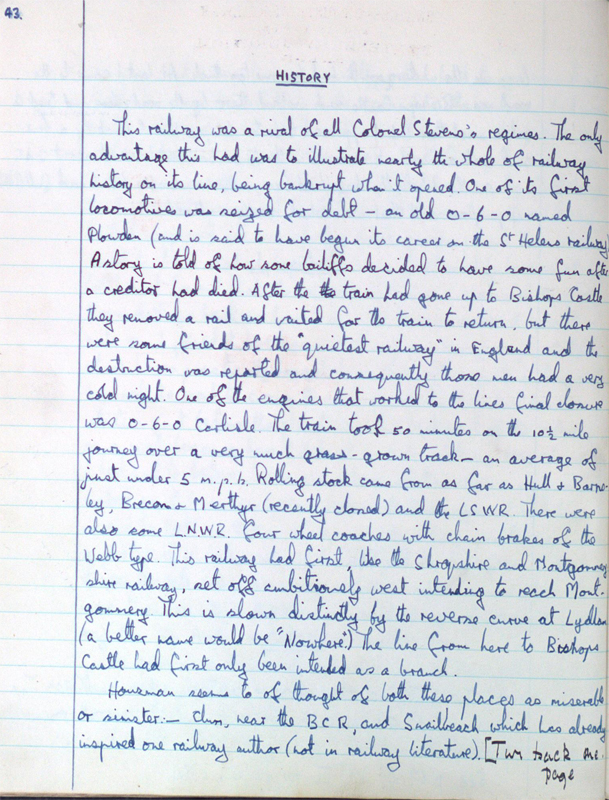 43.
HISTORY
This railway was a rival of all Colonel Stevens's regimes. The only
advantage this had was to illustrate nearly the whole of railway
history on its line, being bankrupt when it opened. One of its first
locomotives was seized for debt - an old 0-6-0 named
Plowden (and is said to have begun its career on the St Helens railway)
A story is told of how some bailiffs decided to have some fun after
a creditor had died. After the the train had gone up to Bishops Castle
they removed a rail and waited for the train to return, but there
were some friends of the "quietest railway" in England and the
destruction was reported and consequently those men had a very
cold night. One of the engines that worked to the lines final closure
was 0-6-0 Carlisle. The train took 50 minutes on the 10½ mile
journey over a very much grass-grown track - an average of
just under 5 m.p.h. Rolling stock came from as far as Hull & Barns-
ley, Brecon & Merthyr (recently closed) and the LSWR. There were
also some L.N.W.R. four wheel coaches with chain brakes of the
Webb type. This railway had first, like the Shropshire and Montgomery
shire railway, set off ambitiously west intending to reach Mont-
gomery. This is shown distinctly by the reverse curve at Lydham
(a better name would be "Nowhere".) The line from here to Bishops
Castle had first only been intended as a branch.
Housman seems to of thought of both these places as miserable
or sinister:- Clun, near the BCR, and Snailbeach which has already
inspired one railway author (not in railway literature). [Turn back one
page